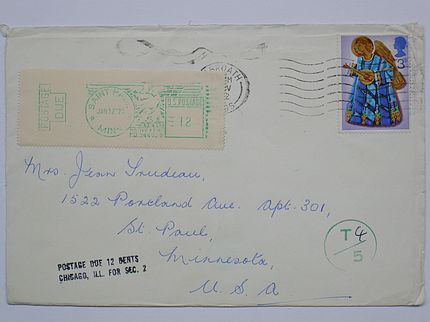 POSTAGE
DUE
SAINT PAUL
JAN
U.S. POSTAGE
12
BROATH
3
Mrs. Jean Trudeau,
1522 Portland Ave. Apt. 301,
St. Paul,
Minnesota,
U. S. A
T 4
5
POSTAGE DUE 12 CENTS
CHICAGO, ILL. FOR SEC. 2